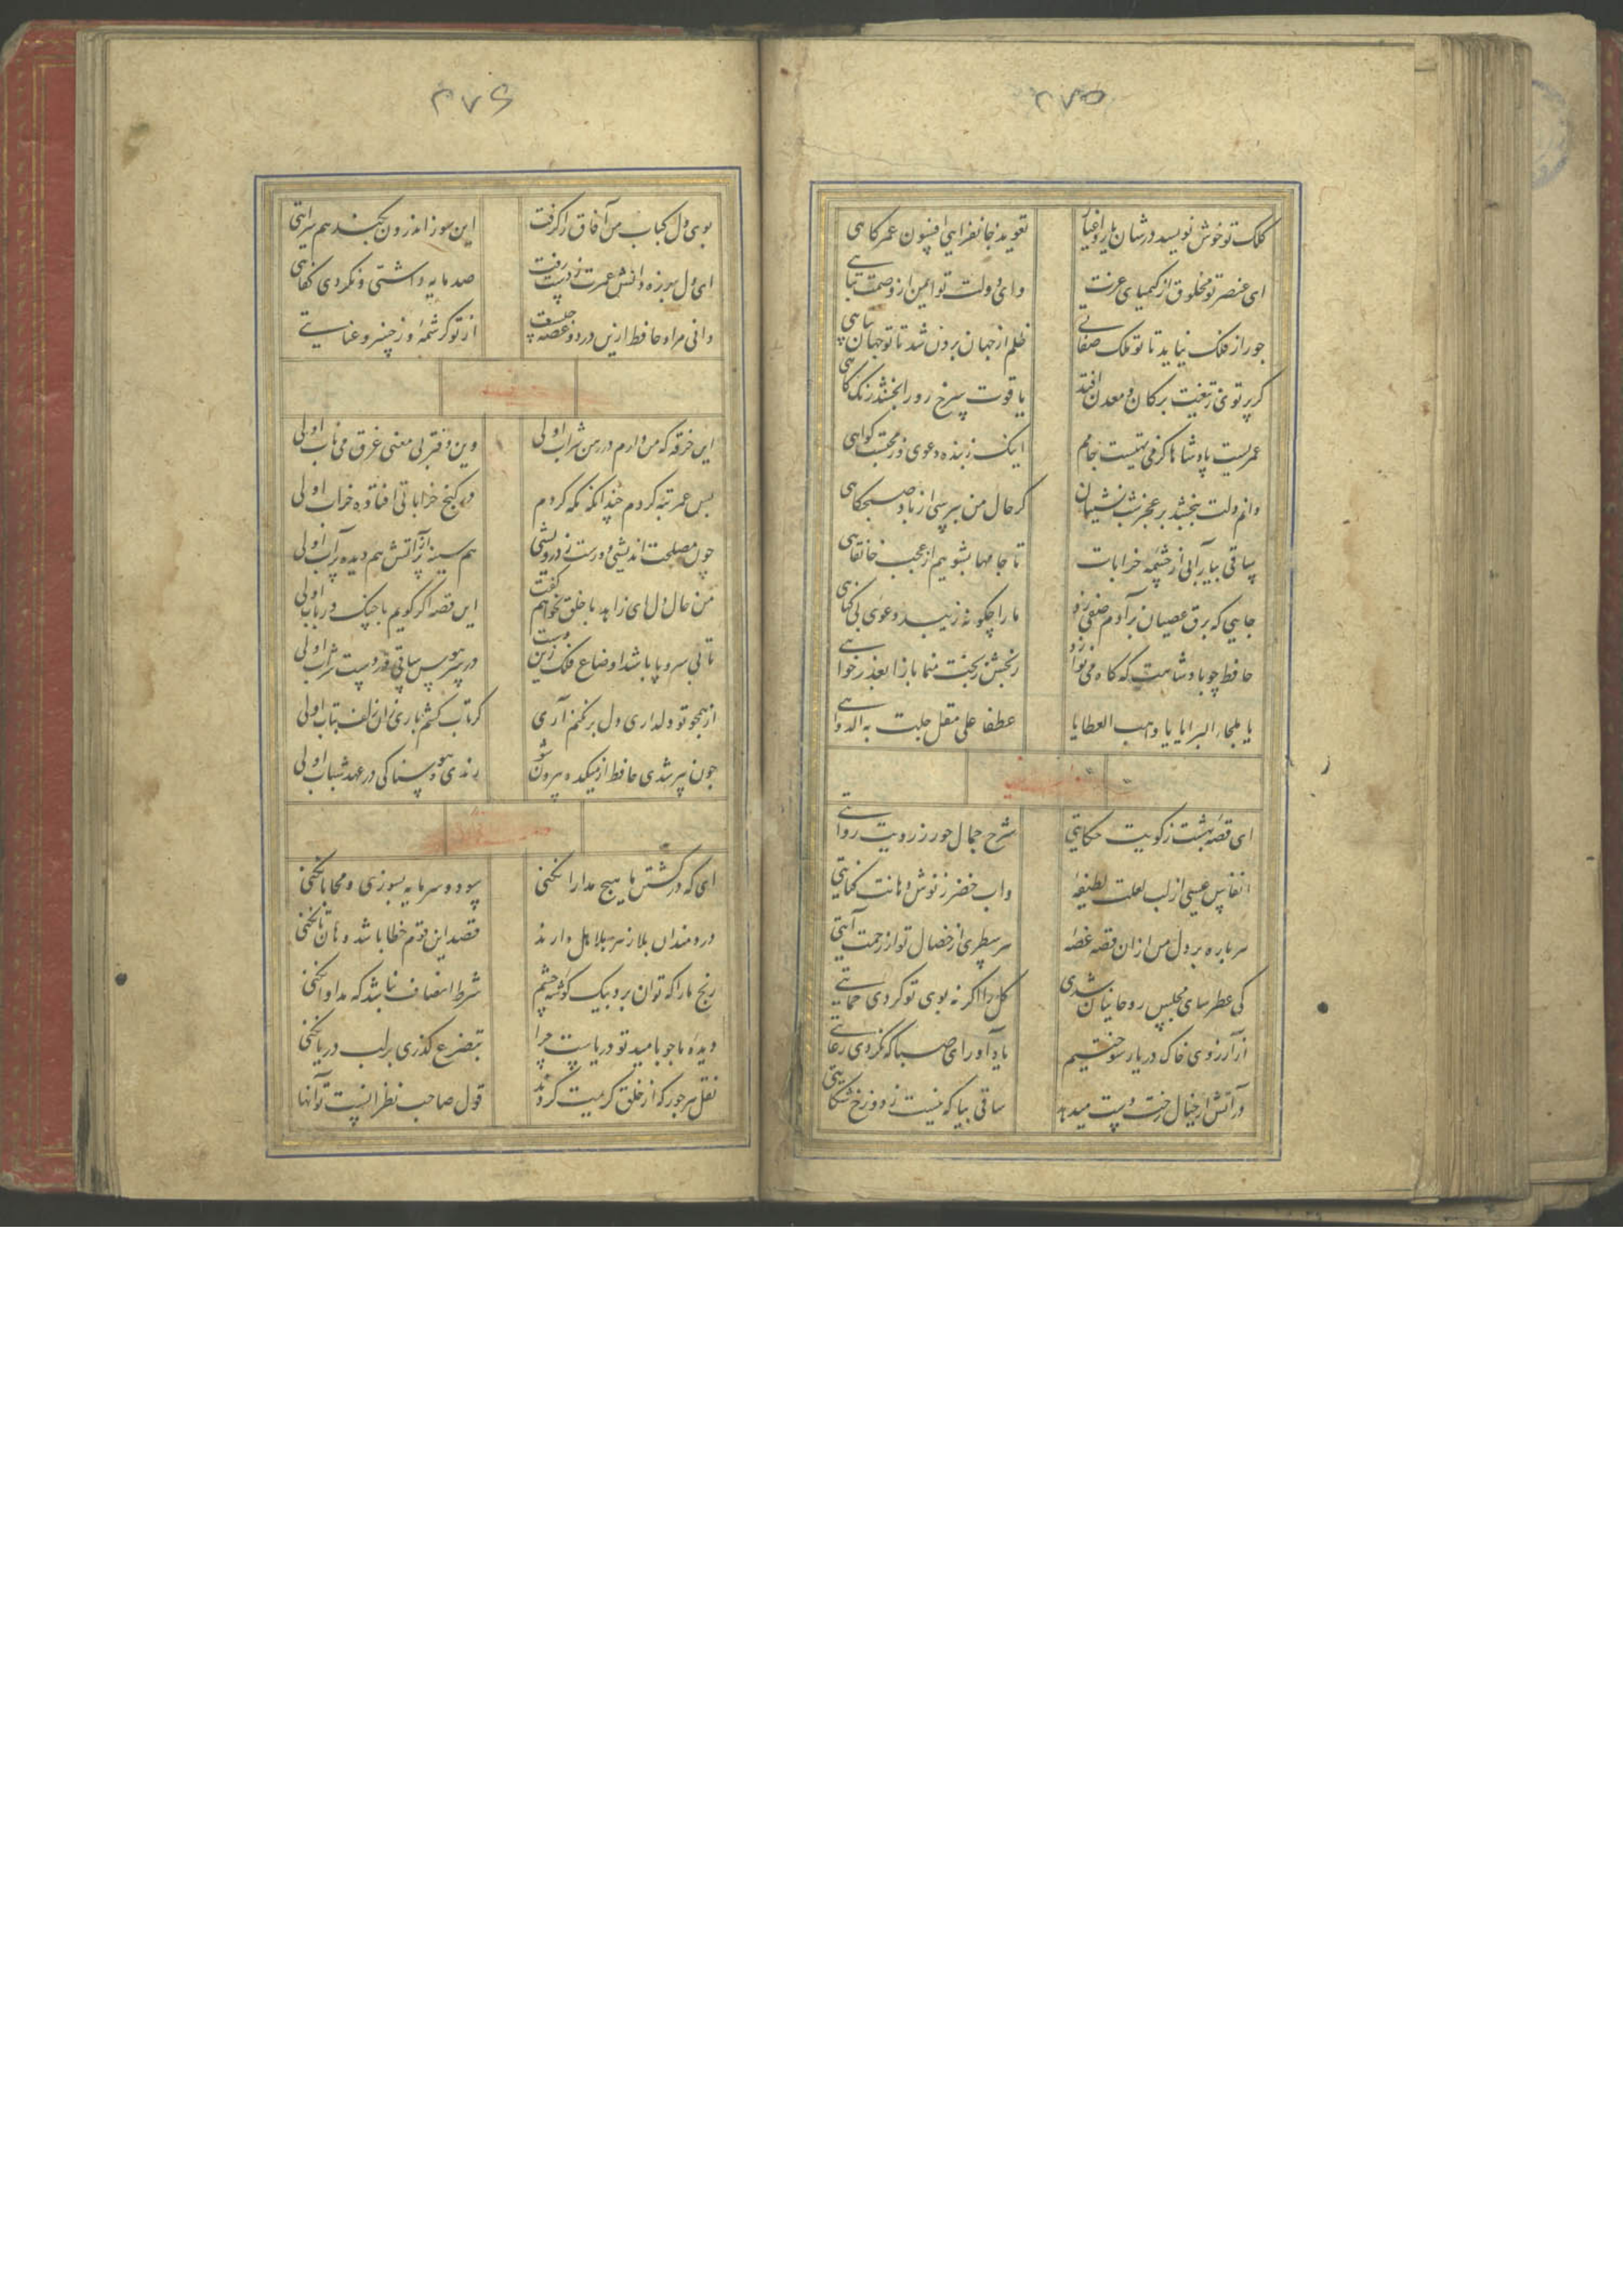 ۲۷۵
کلک تو خوش نویسد در شان یار و اغیار تعویذ جانفزایی افسون عمر کاهی
ای عنصر تو مخلوق از کیمیای عزت وای دولت تو ایمن از وصمت تباهی
جور از فلک نیاید تا تو ملک صفاتی ظلم از جهان برون شد تا تو جهان پناهی
گر پرتوی ز تیغت بر کان و معدن افتد یاقوت سرخ رو را بخشند رنگ کاهی
عمریست پادشاها کز می تهیست جامم اینک ز بنده دعوی وز محتسب گواهی
دانم دلت ببخشد بر عجز شب نشینان گر حال من بپرسی از باد صبحگاهی
ساقی بیار آبی از چشمه خرابات تا جامها بشوییم از عجب خانقاهی
جایی که برق عصیان بر آدم صفی زد ما را چگونه زیبد دعوی بی گناهی
حافظ چو پادشاهت که گاه می نوازد رنجش ز بخت منما باز آ بعذرخواهی
یا ملجاء البرایا یا واهب العطایا عطفا علی مقل حلت به الدواهی
ای قصه بهشت ز کویت حکایتی شرح جمال حور ز رویت روایتی
انفاس عیسی از لب لعلت لطیفه واب خضر ز نوش دهانت کنایتی
هر پاره بر دل من از ان قصه غصه هر سطری از خصال تو از رحمت آیتی
کی عطرسای مجلس روحانیان شدی گل را اگر نه بوی تو کردی حمایتی
از آرزوی خاک در یار سوختیم یاد آور ای صبا که نکردی رعایتی
در آتش ار خیال رخت دست میدهد ساقی بیا که نیست ز دوزخ شکایتی
۲۷۶
بوی دل کباب من آفاق را گرفت این سوز اندرون بکند هم سرایتی
ای دل بهرزه دانش عمرت ز دست رفت صد مایه داشتی و نکردی کفایتی
دانی مراد حافظ ازین درد و غصه چیست از تو کرشمه و ز خسرو عنایتی
این خرقه که من دارم در رهن شراب اولی وین دفتر بی معنی غرق می ناب اولی
بس عمر تبه کردم چندانکه نگه کردم در کنج خراباتی افتاده خراب اولی
چون مصلحت اندیشی دورست ز درویشی هم سینه پر از آتش هم دیده پر آب اولی
من حال دل ای زاهد با خلق نخواهم گفت این قصه اگر گویم با چنگ و رباب اولی
تا بی سر و پا باشد اوضاع فلک زین دست در سر هوس ساقی در دست شراب اولی
از همچو تو دلداری دل برنکنم آری گر تاب کشم باری زان زلف بتاب اولی
چون پیر شدی حافظ از میکده بیرون شو رندی و هوسناکی در عهد شباب اولی
ای که در کشتن ما هیچ مدارا نکنی سود و سرمایه بسوزی و محابا نکنی
دردمندان بلا زهر هلاهل دارند قصد این قوم خطا باشد هان تا نکنی
رنج ما را که توان برد بیک گوشه چشم شرط انصاف نباشد که مداوا نکنی
دیده ما چو بامید تو دریاست چرا بتضرع گذری بر لب دریا نکنی
نقل هر جور که از خلق کریمت کردند قول صاحب نظر انیست تو آنها